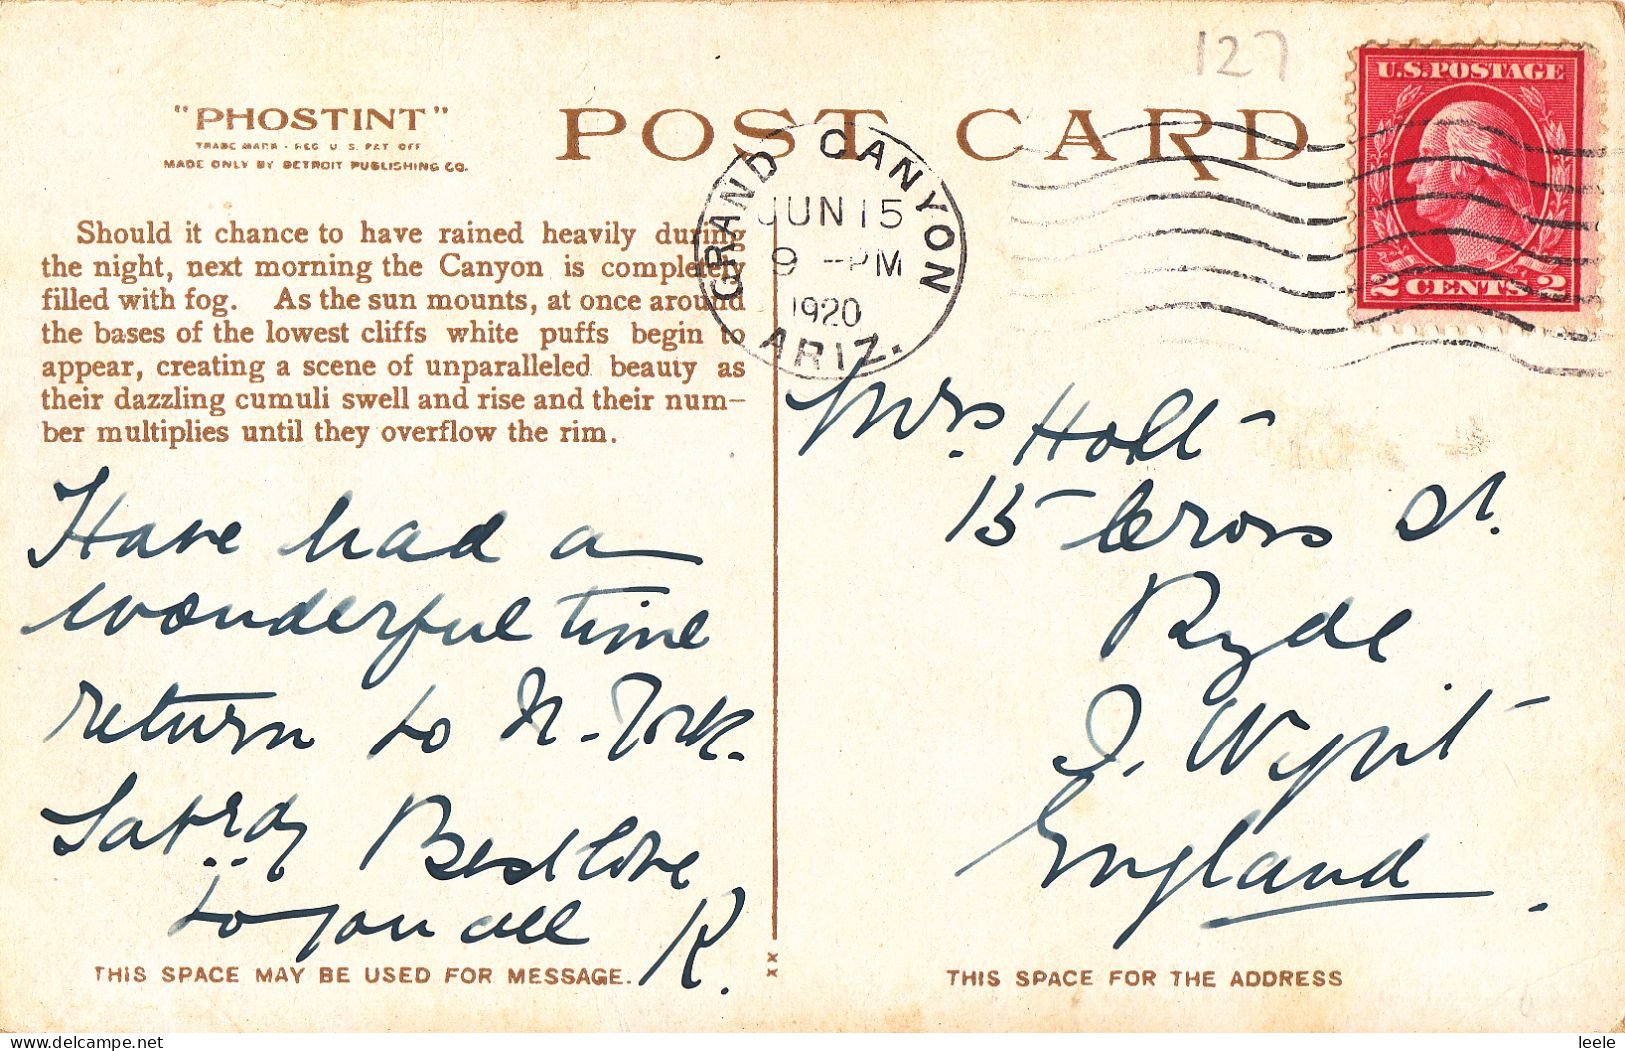 127
"PHOSTINT"
TRADE MARK - REG U. S. PAT OFF
MADE ONLY BY DETROIT PUBLISHING CO.
POST CARD
GRAND CANYON
JUN 15
9 -PM
1920
ARIZ.
U.S. POSTAGE
2 CENTS 2
Should it chance to have rained heavily during
the night, next morning the Canyon is completely
filled with fog. As the sun mounts, at once around
the bases of the lowest cliffs white puffs begin to
appear, creating a scene of unparalleled beauty as
their dazzling cumuli swell and rise and their num-
ber multiplies until they overflow the rim.
Have had a
wonderful time
return to N. York.
Satrdy Best love
to you all K.
THIS SPACE MAY BE USED FOR MESSAGE.
Mrs. Holt
15 Cross St.
Ryde
I. Wight
England.
THIS SPACE FOR THE ADDRESS
delcampe.net
leele